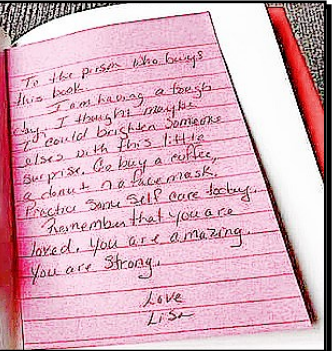 To the person who buys
this book
I am having a tough
day. I thought maybe
I could brighten someone
elses with this little
surprise. Go buy a coffee,
a donut n a facemask.
Practice some self care today.
Remember that you are
loved. You are amazing.
You are strong.
Love
Lisa